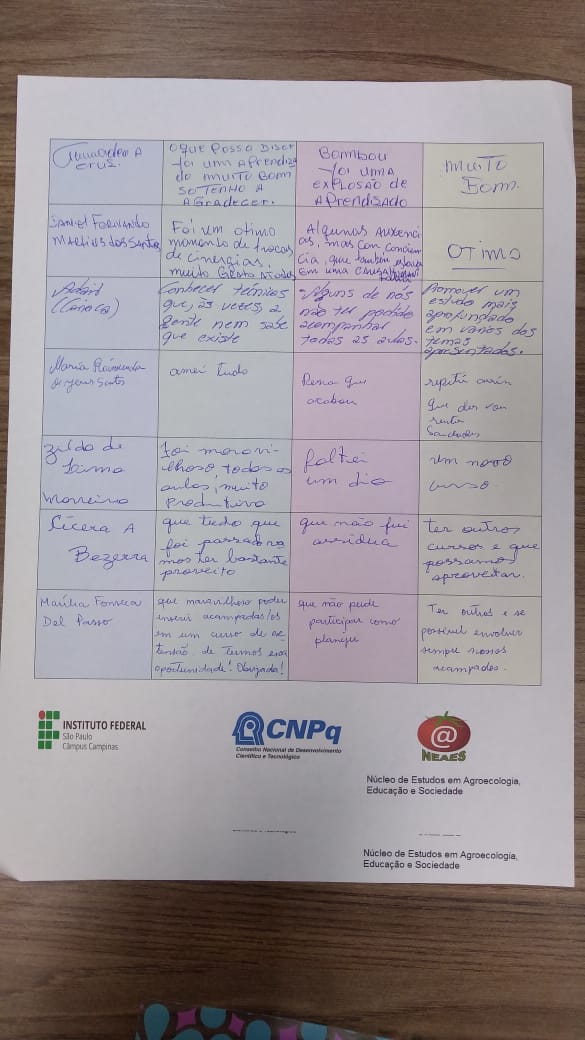 A
Cruz.
O que posso diser
foi um Aprendiza
do muito Bom
SO TENHO A
AGradecer.
Bombou
foi uma
explosão de
Aprendizado
muito
Bom.
Daniel Fernando
dos Santos
Foi um otimo
momento de trocas
de cinergias,
muito Grato A todos
Algumas Ausenci
as, mas com concien
cia, que também estava
em uma
OTIMO
(Carioca)
Conhecer técnicas
que, às vezes, a
gente nem sabe
que existe
Alguns de nós
não ter podido
acompanhar
todas as aulas.
Promover um
estudo mais
aprofundado
em varios dos
temas
apresentados.
Maria Raimunda
de Jesus Santos
amei tudo
Pena que
acabou
repitir assim
que der vou
sentir
Saudades
Zildo de
Lima
Moreira
Foi maravi-
lhoso todas as
aulas, muito
Produtivo
faltei
um dia
um novo
curso.
Cícera A
Bezerra
que tudo que
foi passado va
mos ter bastante
proveito
que não fui
assídua
ter outros
cursos e que
possamos
aproveitar.
Marília Fonseca
Dal Passo
que maravilhoso poder
inserir acampados/as
em um curso de ex
tensão, de termos essa
oportunidade! Obrigada!
que não pude
participar como
planejei
Ter outros e se
possível envolver
sempre nossos
acampados.
INSTITUTO FEDERAL
São Paulo
Câmpus Campinas
CNPq
Conselho Nacional de Desenvolvimento
Científico e Tecnológico
@
NEAES
Núcleo de Estudos em Agroecologia,
Educação e Sociedade
Núcleo de Estudos em Agroecologia,
Educação e Sociedade